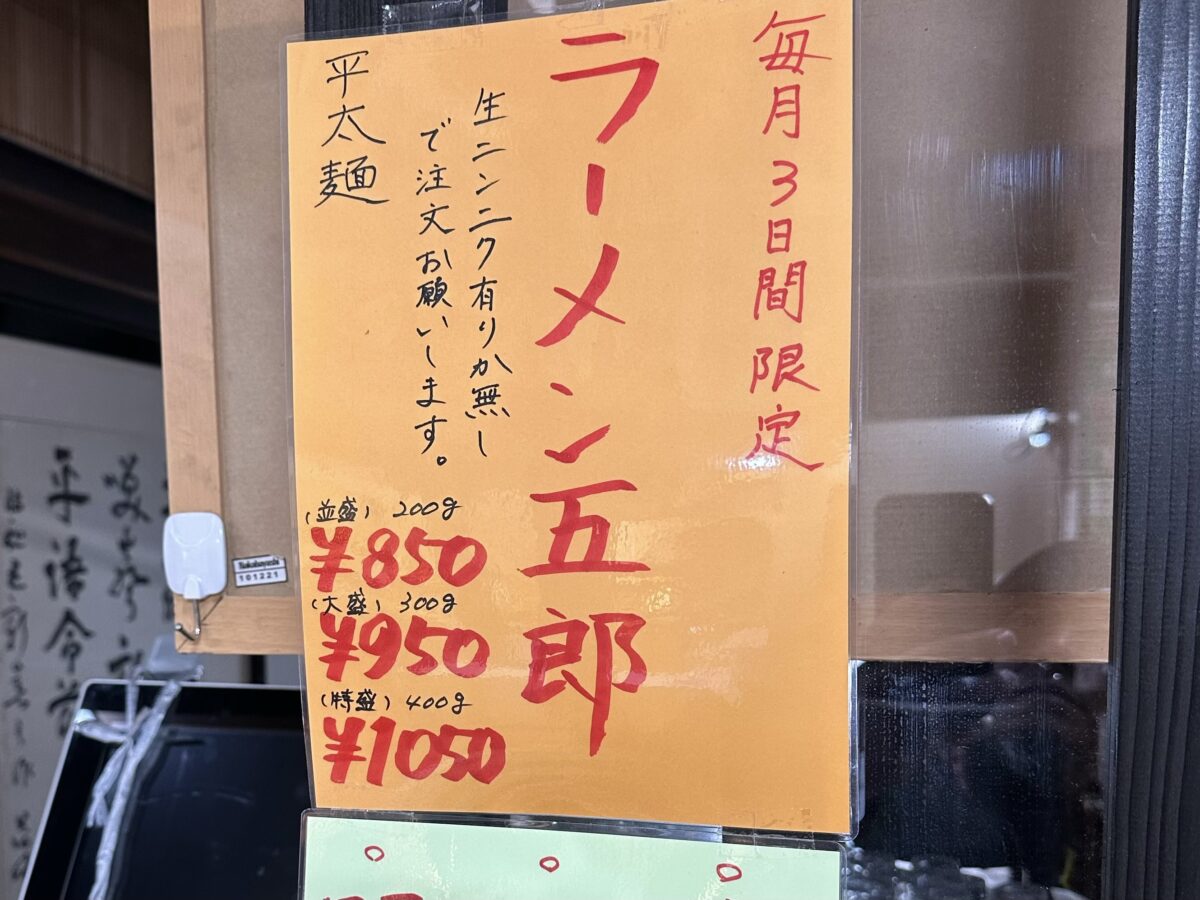 毎月3日間限定
ラーメン五郎
生ニンニク有りか無し
で注文お願いします。
平太麺
(並盛) 200g
¥850
(大盛) 300g
¥950
(特盛) 400g
¥1050
Nakabayashi
101221